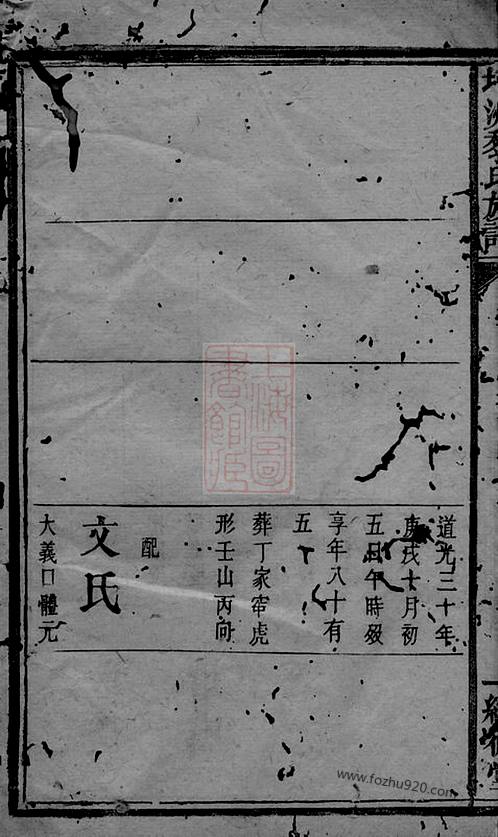 道光三十年
庚戌十月初
五日午時歿
享年八十有
五
葬丁家帘虎
形壬山丙向
配
文氏
大義口體元
氏族譜
上海圖
書館藏
www.fozhu920.com